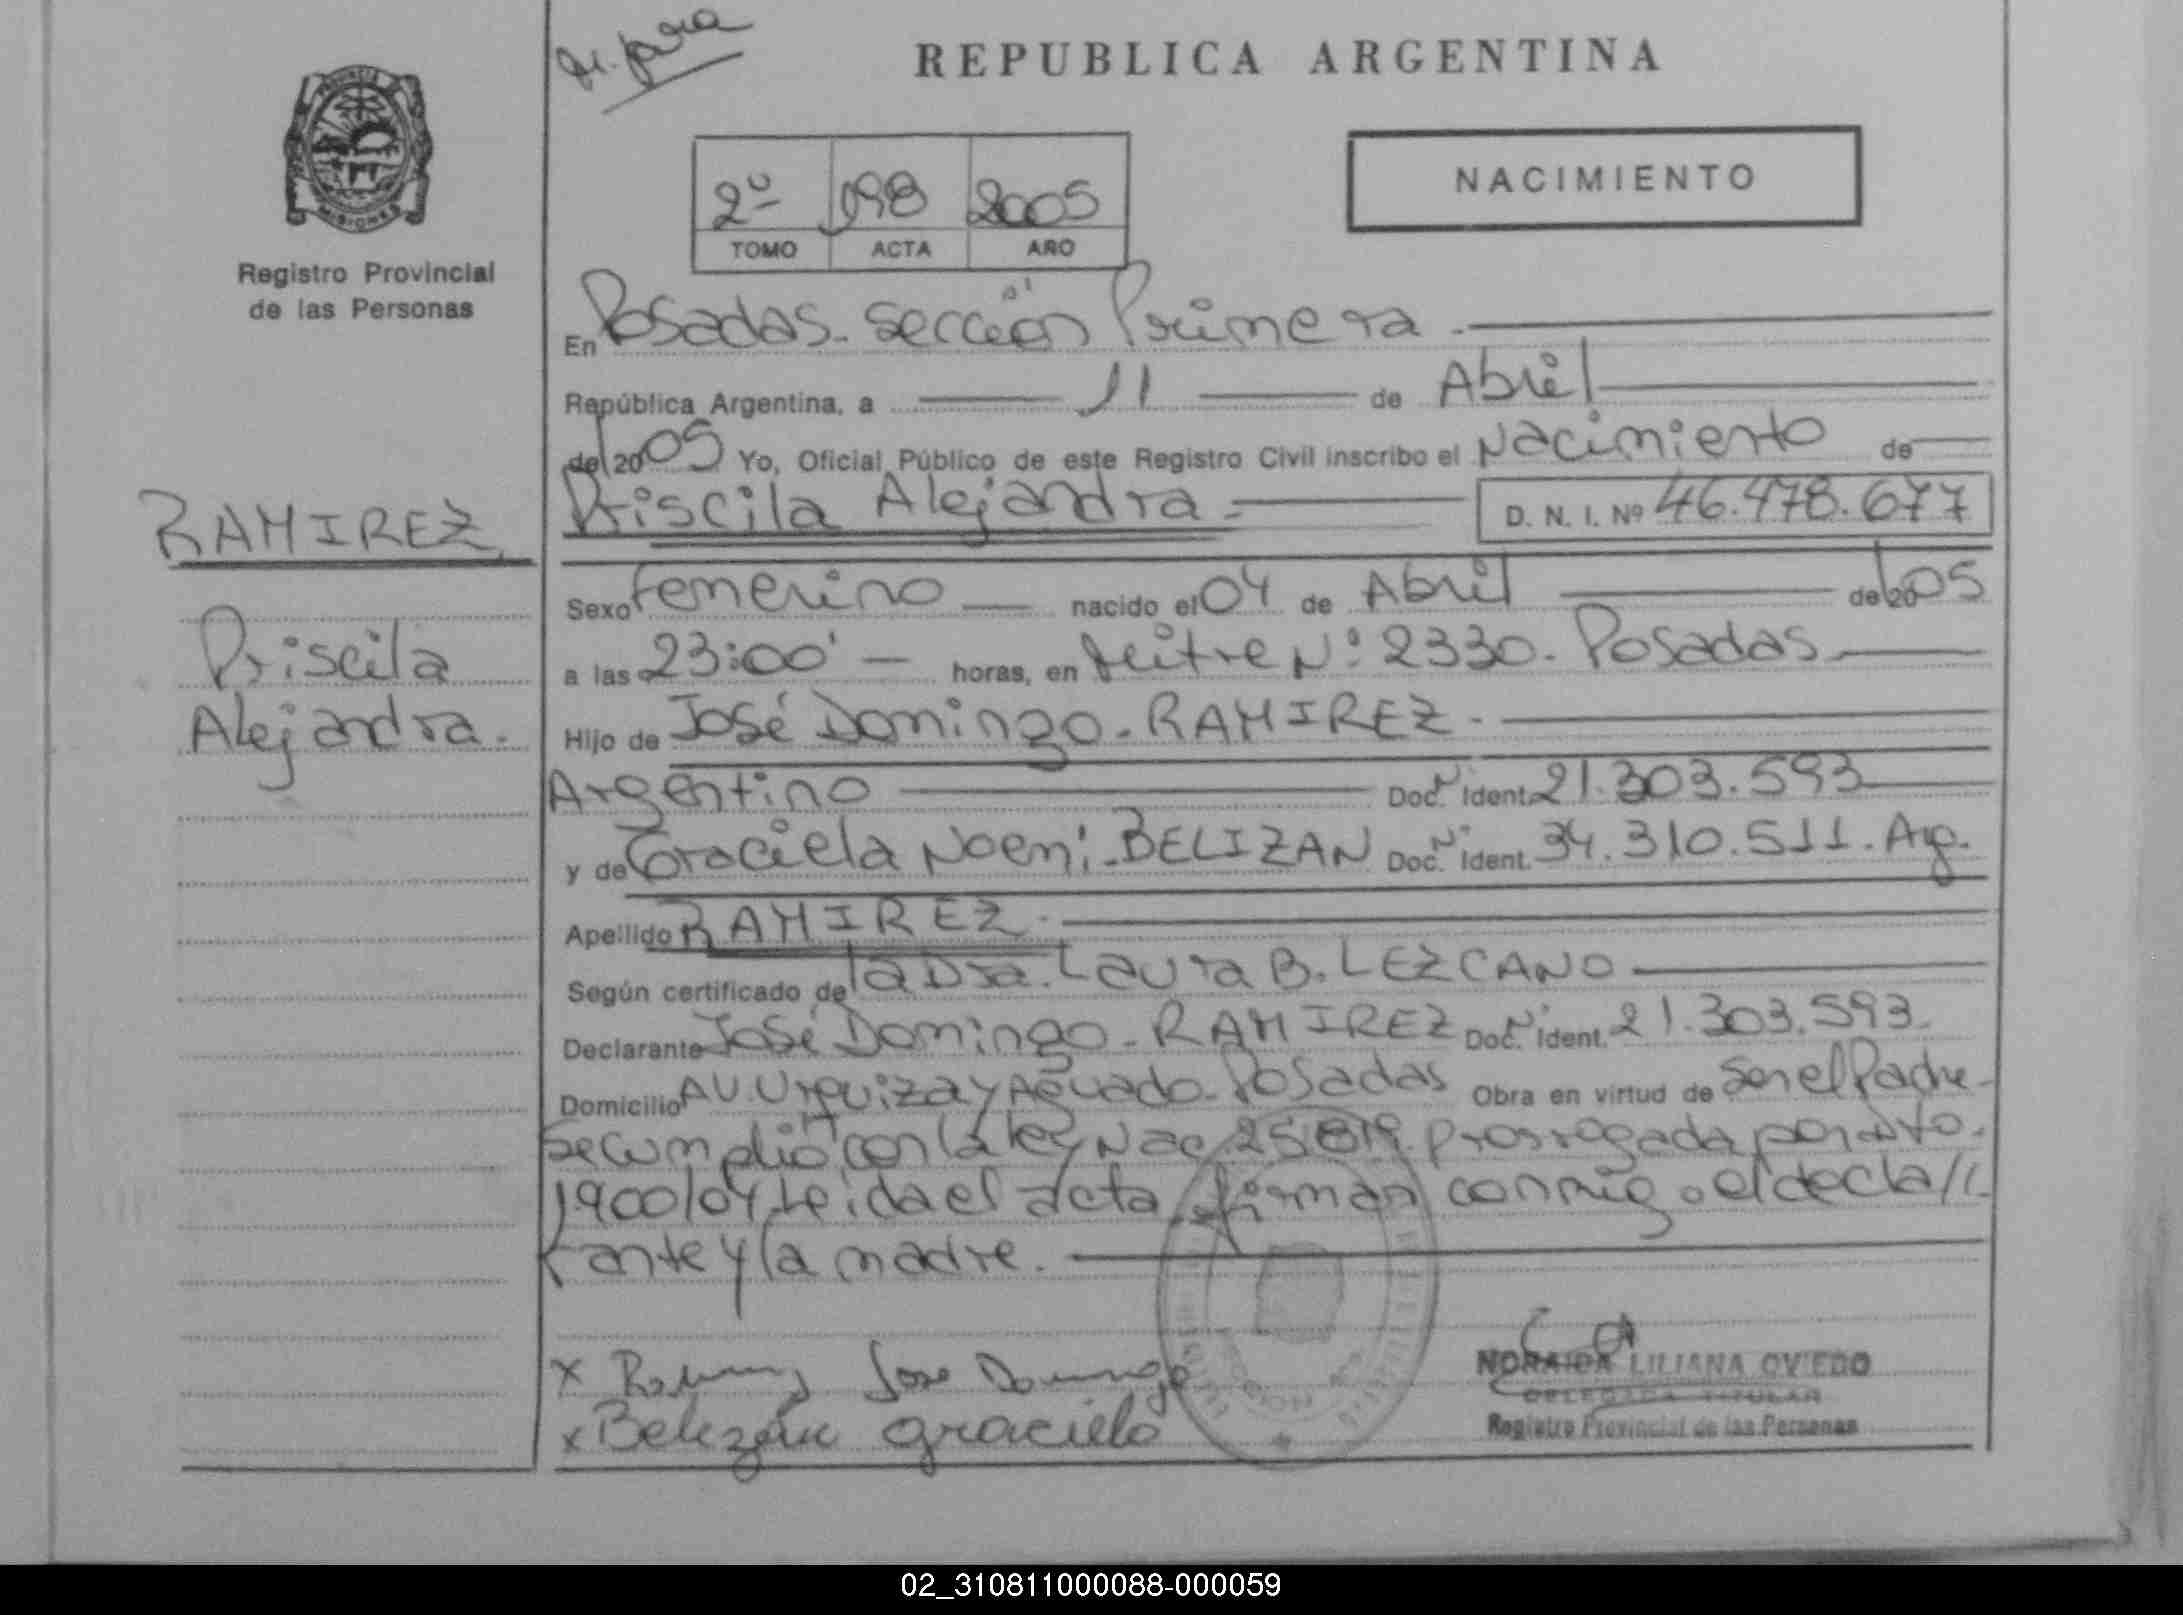 REPUBLICA ARGENTINA
PROVINCIA
MISIONES
Registro Provincial
de las Personas
NACIMIENTO
2º 198 2005
TOMO ACTA AÑO
En Posadas. sección Primera
República Argentina, a 11 de Abril
del 2005 Yo, Oficial Público de este Registro Civil inscribo el Nacimiento de
Priscila Alejandra D. N. I. Nº 46.478.677
RAMIREZ
Priscila
Alejandra.
Sexo femenino nacido el 04 de Abril del 2005
a las 23:00' horas, en Mitre Nº: 2330. Posadas
Hijo de José Domingo - RAMIREZ.
Argentino Doc. Nº Ident. 21.303.593
y de Graciela Noemí - BELIZAN Doc. Nº Ident. 34.310.511. Arg.
Apellido RAMIREZ.
Según certificado de la Dra. Laura B. LEZCANO
Declarante José Domingo - RAMIREZ Doc. Nº Ident. 21.303.593.
Domicilio AV. Urquiza y Aguado - Posadas Obra en virtud de ser el Padre
se cumplió con la ley Nac. 25.819. prorrogada por Dto.
1900/04. Leida el acta, firman conmigo el decla//
rante y la madre.
x Jose Domingo
x Belizán graciela
NORAIDA LILIANA OVIEDO
DELEGADA TITULAR
Registro Provincial de las Personas
02_310811000088-000059